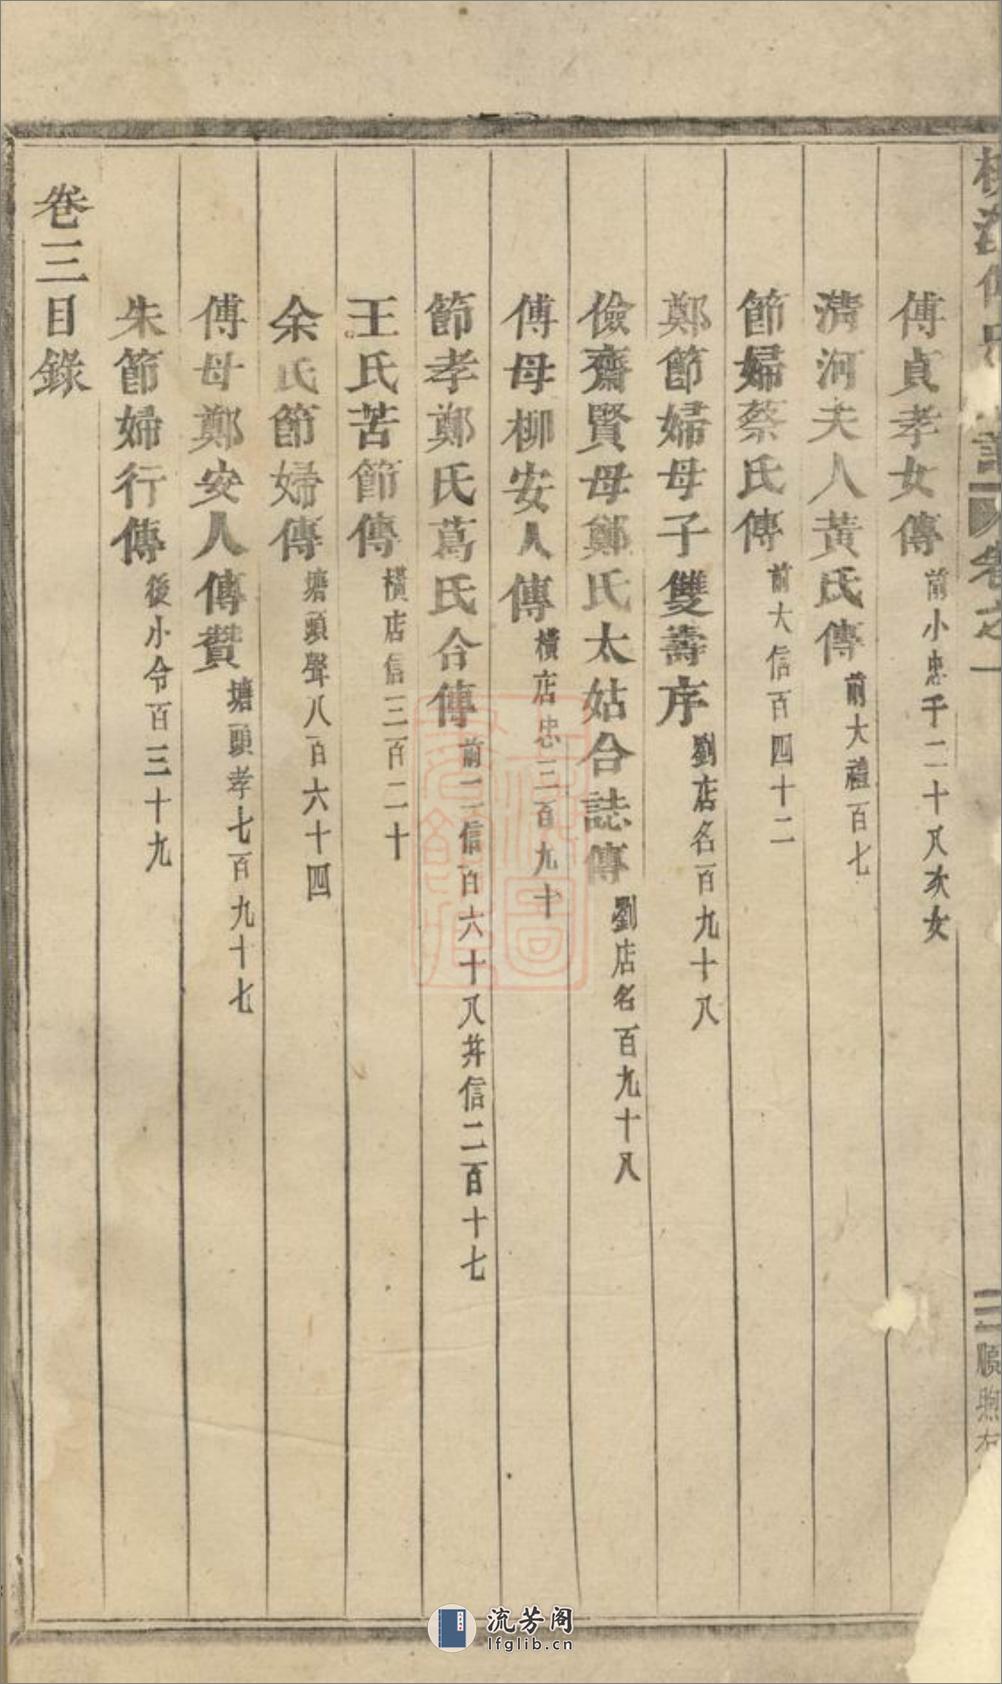 傅貞孝女傳 前小忠千二十八次女
清河夫人黃氏傳 前大禮百七
節婦蔡氏傳 前大信百四十二
鄭節婦母子雙壽序 劉店名百九十八
儉齋賢母鄭氏太姑合誌傳 劉店名百九十八
傅母柳安人傳 橫店忠三百九十
節孝鄭氏葛氏合傳 前二信百六十八并信二百十七
王氏苦節傳 橫店信三百二十
余氏節婦傳 塘頭聲八百六十四
傅母鄭安人傳贊 塘頭孝七百九十七
朱節婦行傳 後小令百三十九
卷三目錄
卷之一
二
流芳阁
lfglib.cn